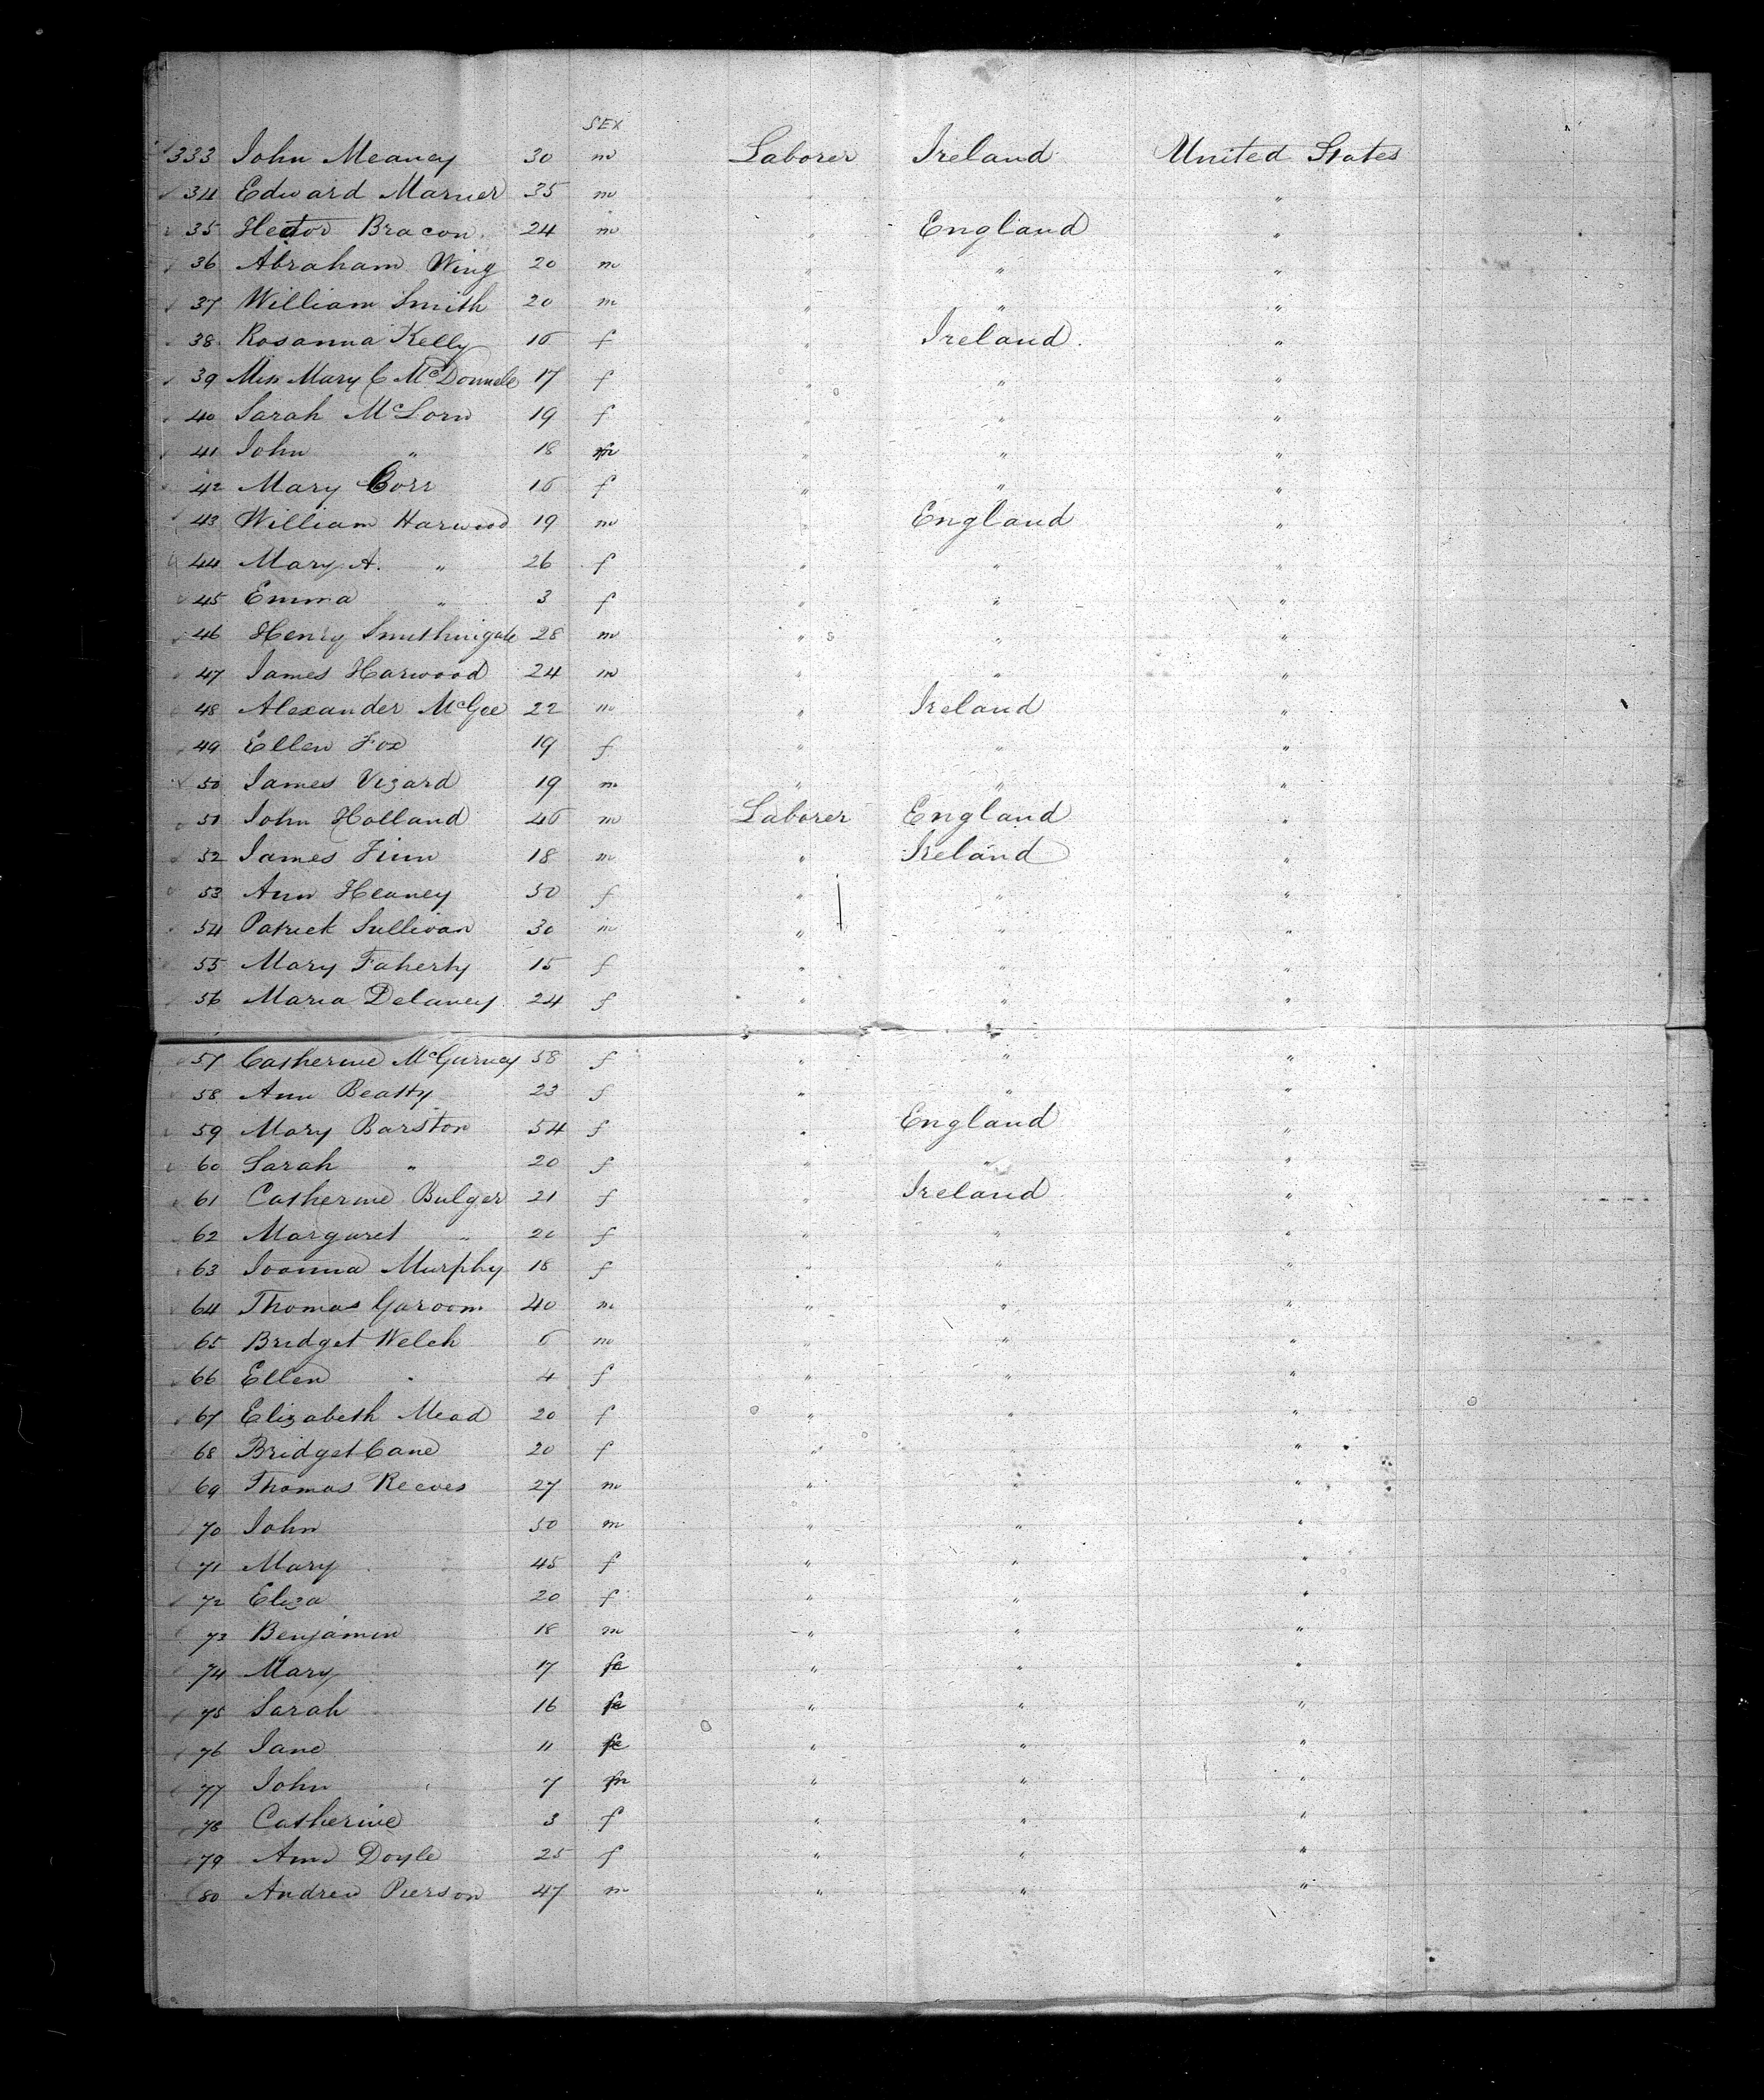 SEX
333 John Meaney 30 m Laborer Ireland United States
34 Edward Marner 35 m " "
35 Hector Bracon 24 m " England "
36 Abraham Wing 20 m " " "
37 William Smith 20 m " " "
38 Rosanna Kelly 16 f " Ireland. "
39 Miss Mary C McDonnele 17 f " " "
40 Sarah McLorn 19 f " " "
41 John " 18 m " " "
42 Mary Corr 16 f " " "
43 William Harwood 19 m " England "
44 Mary A. " 26 f " " "
45 Emma " 3 f " " "
46 Henry 28 m " " "
47 James Harwood 24 m " " "
48 Alexander McGee 22 m " Ireland "
49 Ellen Fox 19 f " " "
50 James Vizard 19 m " " "
51 John Holland 46 m Laborer England "
52 James Finn 18 m " Ireland "
53 Ann Heaney 50 f " " "
54 Patrick Sullivan 30 m " " "
55 Mary Faherty 15 f " " "
56 Maria Delaney 24 f " " "
57 Catherine McGurney 58 f " " "
58 Ann Beatty 23 f " " "
59 Mary Barston 54 f " England "
60 Sarah " 20 f " " "
61 Catherine Bulger 21 f " Ireland "
62 Margaret " 20 f " " "
63 Joanna Murphy 18 f " " "
64 Thomas Garoom 40 m " " "
65 Bridget Welch 6 m " " "
66 Ellen " 4 f " " "
67 Elizabeth Mead 20 f " " "
68 Bridget Cane 20 f " " "
69 Thomas Reeves 27 m " " "
70 John 50 m " " "
71 Mary 45 f " " "
72 Eliza 20 f " " "
73 Benjamin 18 m " " "
74 Mary 17 f " " "
75 Sarah 16 f " " "
76 Jane 11 f " " "
77 John 7 m " " "
78 Catherine 3 f " " "
79 Ann Doyle 25 f " " "
80 Andrew Pierson 47 m " " "